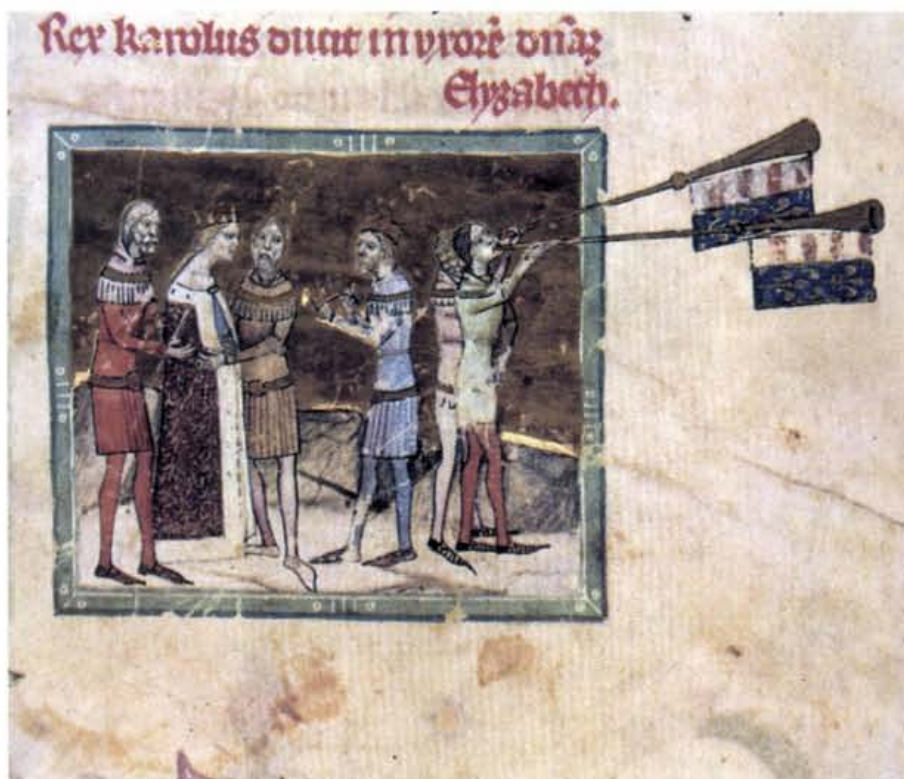 Rex karolus ducit in uxorē dnāꝫ
Elyzabeth.